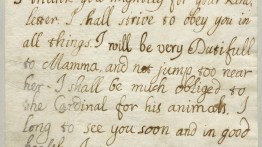 letter. I shall strive to obey you in
all things. I will be very Dutifull
to Mamma, and not jump too near
her. I shall be much obliged to
the Cardinal for his animals. I
long to see you soon and in good